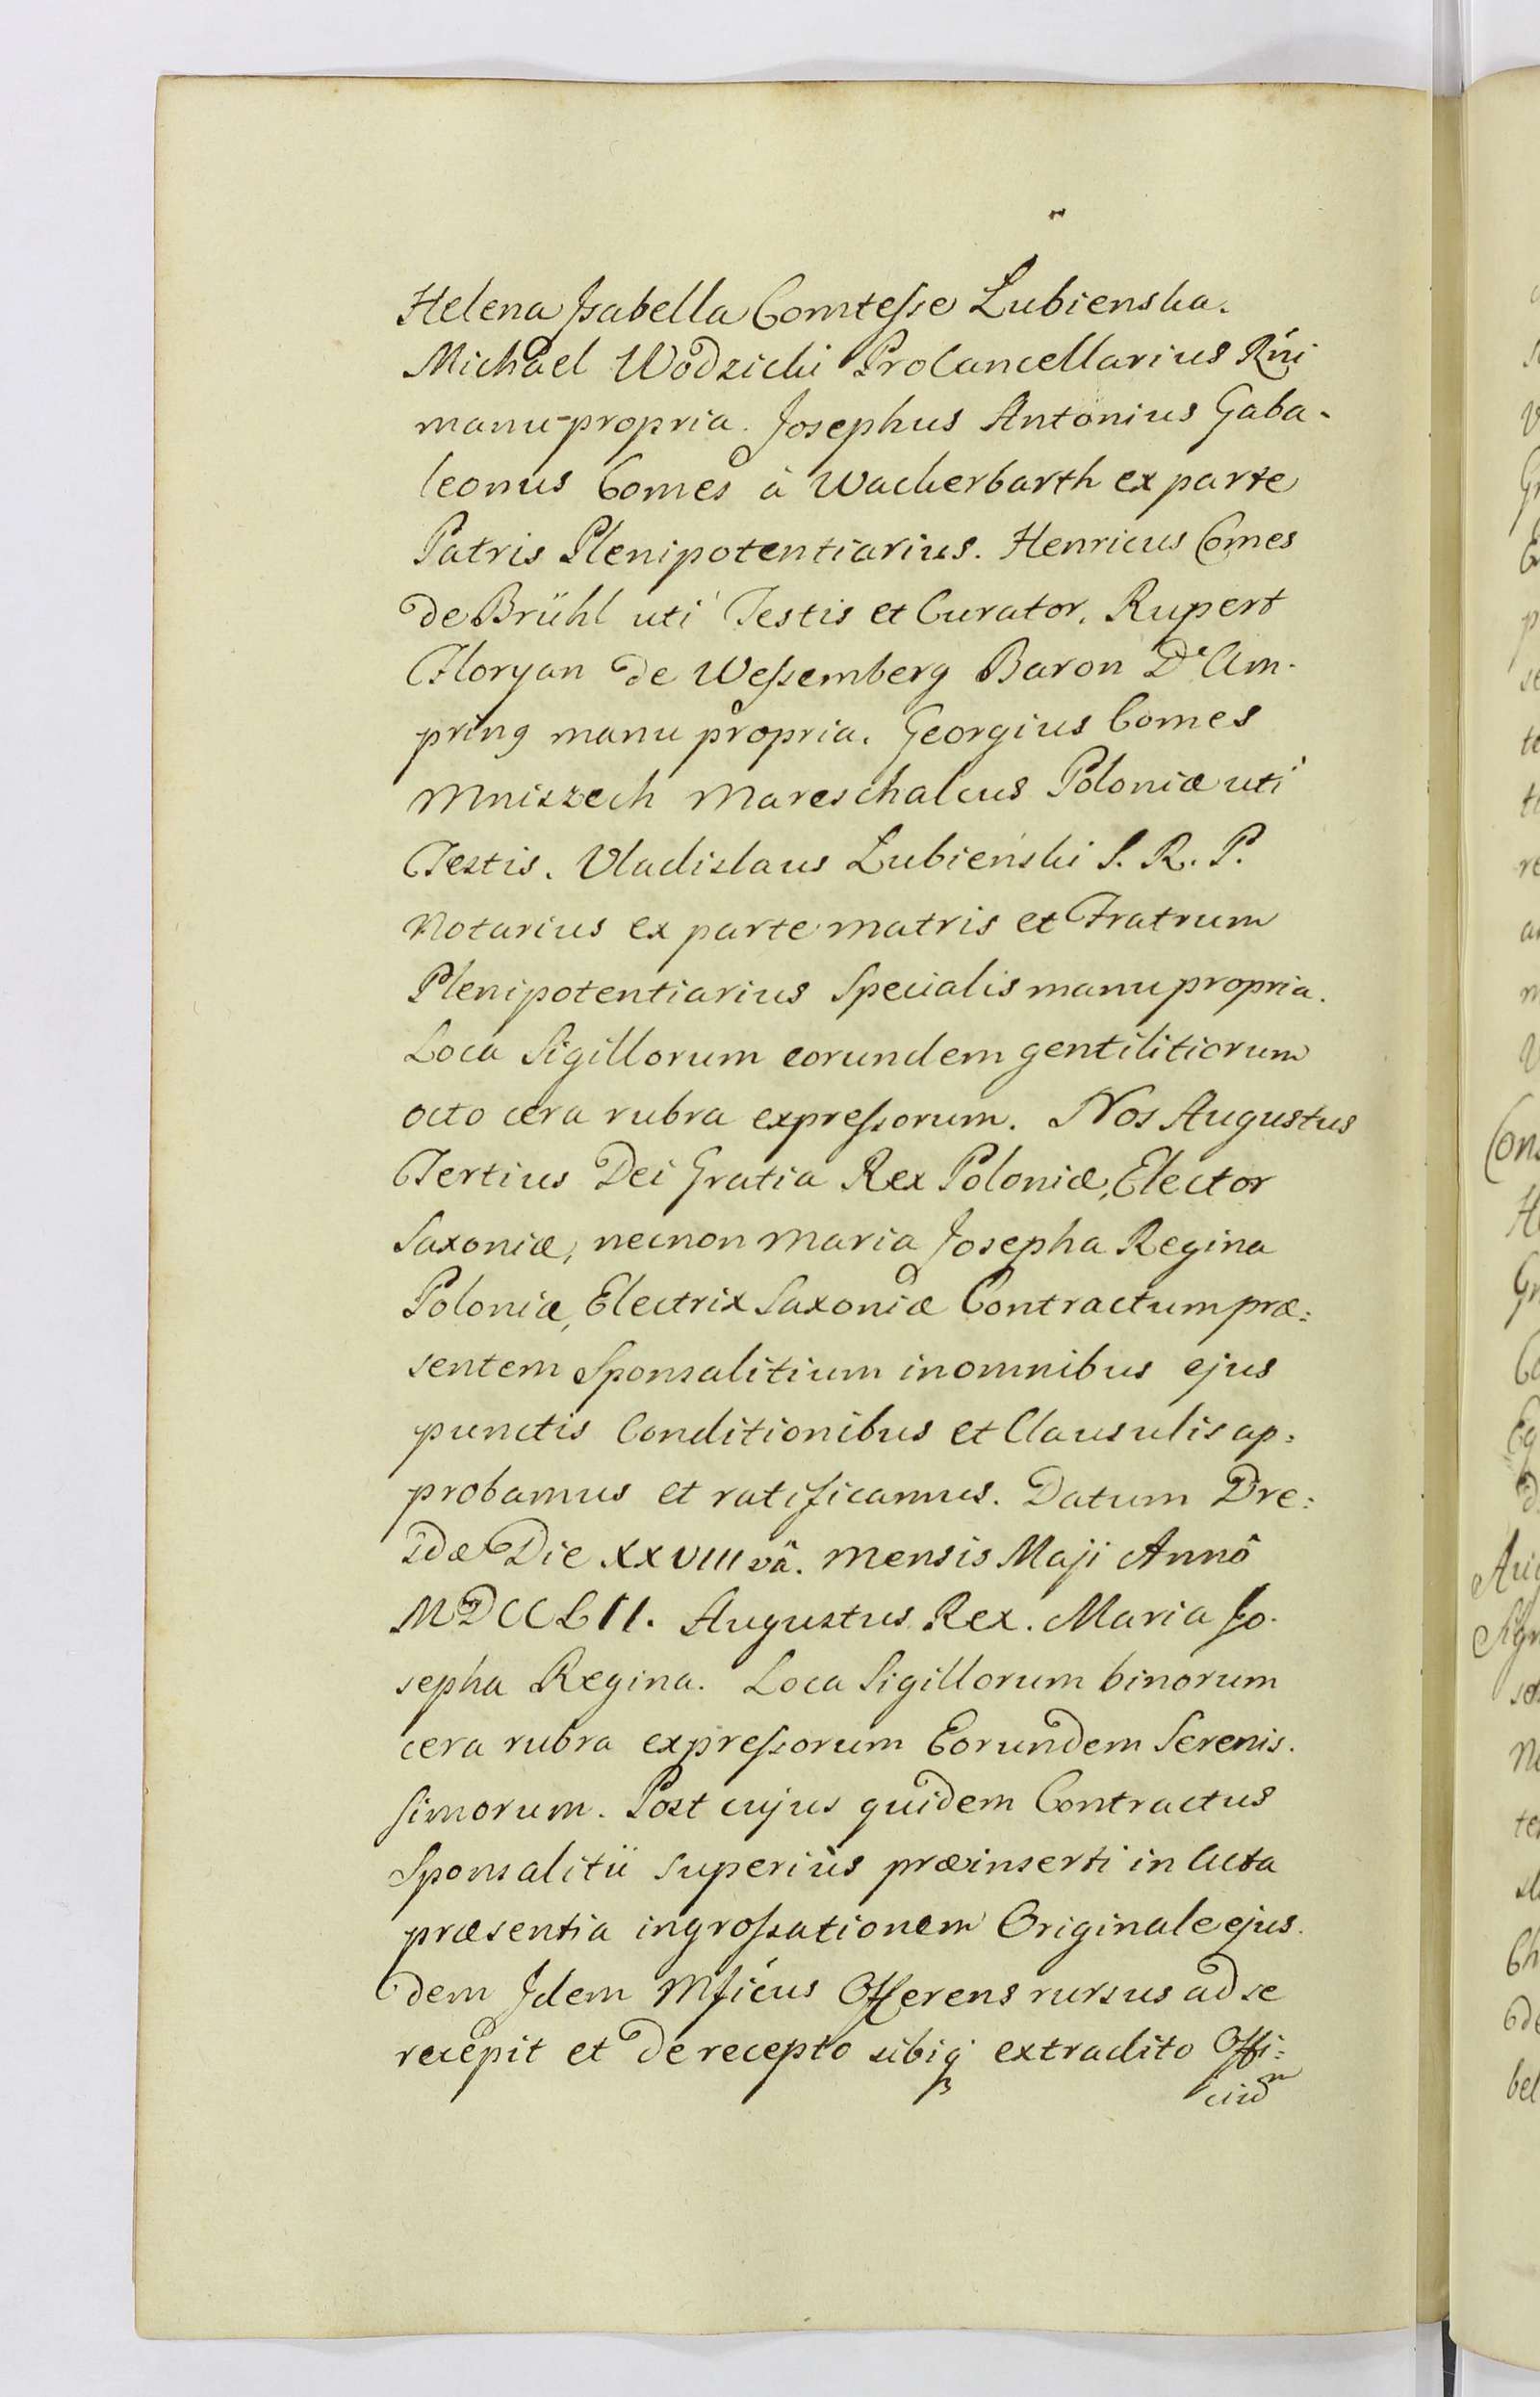 Helena Isabella Comtesse Lubienska.
Michael Wodzicki ProCancellarius Rńi
manu-propria. Josephus Antonius Gaba-
leonus Comes à Wackerbarth ex parte
Patris Plenipotentiarius. Henricus Comes
de Brühl uti Testis et Curator. Rupert
Floryan de Wessemberg Baron D'Am-
pring manu propria. Georgius Comes
Mniszech Mareschalcus Poloniæ uti
Testis. Vladislaus Lubieński S. R. P.
Notarius ex parte matris et Fratrum
Plenipotentiarius Specialis manu propria.
Loca Sigillorum eorundem gentilitiorum
octo cera rubra expressorum. Nos Augustus
Tertius Dei Gratia Rex Poloniæ, Elector
Saxoniæ, necnon Maria Josepha Regina
Poloniæ, Electrix Saxoniæ Contractum præ:
sentem Sponsalitium in omnibus ejus
punctis Conditionibus et Clausulis ap:
probamus et ratificamus. Datum Dre:
zdæ Die XXVIII vâ. mensis Maji Annô
MDCCLII. Augustus Rex. Maria Jo-
sepha Regina. Loca Sigillorum binorum
cera rubra expressorum Eorundem Serenis-
simorum. Post cujus quidem Contractus
Sponsalitii superiùs præinserti in Acta
præsentia ingrossationem Originale ejus-
dem Idem Mficus Offerens rursus ad se
recepit et de recepto sibiq3 extradito Offi: